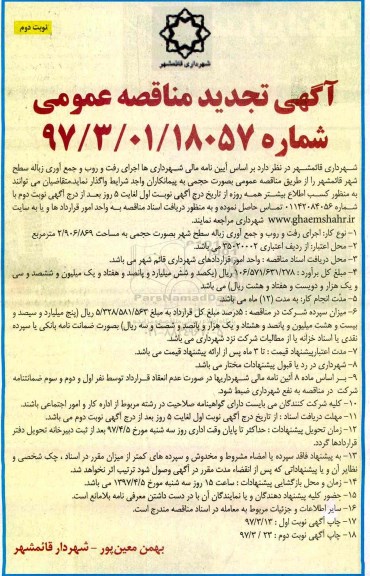 نوبت دوم
شهرداری قائمشهر
آگهی تجدید مناقصه عمومی
شماره ۹۷/۳/۰۱/۱۸۰۵۷
شهرداری قائمشهر در نظر دارد بر اساس آیین نامه مالی شهرداری ها اجرای رفت و روب و جمع آوری زباله سطح
شهر قائمشهر را از طریق مناقصه عمومی بصورت حجمی به پیمانکاران واجد شرایط واگذار نماید.متقاضیان می توانند
به منظور کسب اطلاع بیشتر همه روزه از تاریخ درج آگهی نوبت اول لغایت ۵ روز بعد از درج آگهی نوبت دوم با
شماره ۰۱۱۴۲۰۸۴۰۵۶ تماس حاصل نموده و به منظور دریافت اسناد مناقصه به واحد امور قرارداد ها و یا به سایت
www.ghaemshahr.ir شهرداری مراجعه نمایند.
۱- نوع کار: اجرای رفت و روب و جمع آوری زباله سطح شهر بصورت حجمی به مساحت ۲/۹۰۶/۸۶۹ مترمربع
۲- محل اعتبار: از ردیف اعتباری ۳۵۰۲۰۰۰۲ می باشد.
۳- محل دریافت اسناد مناقصه : واحد امور قراردادهای شهرداری قائم شهر می باشد.
۴- مبلغ کل برآورد : ۱۰۶/۵۷۱/۶۳۱/۲۷۸ ریال (یکصد و شش میلیارد و پانصد و هفتاد و یک میلیون و ششصد و سی
و یک هزار و دویست و هفتاد و هشت ریال) می باشد
۵- مدت انجام کار: به مدت (۱۲) ماه می باشد.
۶- میزان سپرده شرکت در مناقصه : ۵درصد مبلغ کل قرارداد به مبلغ ۵/۳۲۸/۵۸۱/۵۶۳ ریال (پنج میلیارد و سیصد و
بیست و هشت میلیون و پانصد و هشتاد و یک هزار و پانصد و شصت و سه ریال) بصورت ضمانت نامه بانکی یا سپرده
نقدی یا اسناد خزانه یا از مطالبات شرکت نزد شهرداری می باشد.
۷- مدت اعتبارپیشنهاد قیمت : تا ۳ ماه پس از ارائه پیشنهاد قیمت می باشد.
۸- شهرداری در رد یا قبول پیشنهادات مختار می باشد.
۹- بر اساس ماده ۸ آئین نامه مالی شهرداریها در صورت عدم انعقاد قرارداد توسط نفر اول و دوم و سوم ضمانتنامه
شرکت در مناقصه به نفع شهرداری ضبط شود.
۱۰- کلیه شرکت کنندگان می بایست دارای گواهینامه صلاحیت در رشته مربوط از اداره کار و امور اجتماعی باشند.
۱۱- مهلت دریافت اسناد : از تاریخ درج آگهی نوبت اول لغایت ۵ روز بعد از درج آگهی نوبت دوم می باشد.
۱۲- زمان تحویل پیشنهادات : حداکثر تا پایان وقت اداری روز سه شنبه مورخ ۹۷/۴/۵ بعد از ثبت دبیرخانه تحویل دفتر
قراردادها گردد.
۱۳- به پیشنهاد فاقد سپرده یا امضاء مشروط و مخدوش و سپرده های کمتر از میزان مقرر در اسناد ، چک شخصی و
نظایر آن و یا پیشنهاداتی که پس از انقضاء مدت مقرر در آگهی وصول شود ترتیب اثر نخواهد شد.
۱۴- زمان و محل بازگشایی پیشنهادات : ساعت ۱۵ روز سه شنبه مورخ ۱۳۹۷/۴/۵ می باشد.
۱۵- حضور کلیه پیشنهاد دهندگان و یا نمایندگان آن با در دست داشتن معرفی نامه بلامانع است.
۱۶- سایر اطلاعات و جزئیات مربوط به معامله در اسناد مناقصه مندرج است.
۱۷- چاپ آگهی نوبت اول : ۹۷/۳/۱۳
۱۸- چاپ آگهی نوبت دوم : ۲۳ / ۳ / ۹۷
بهمن معین پور - شهردار قائمشهر